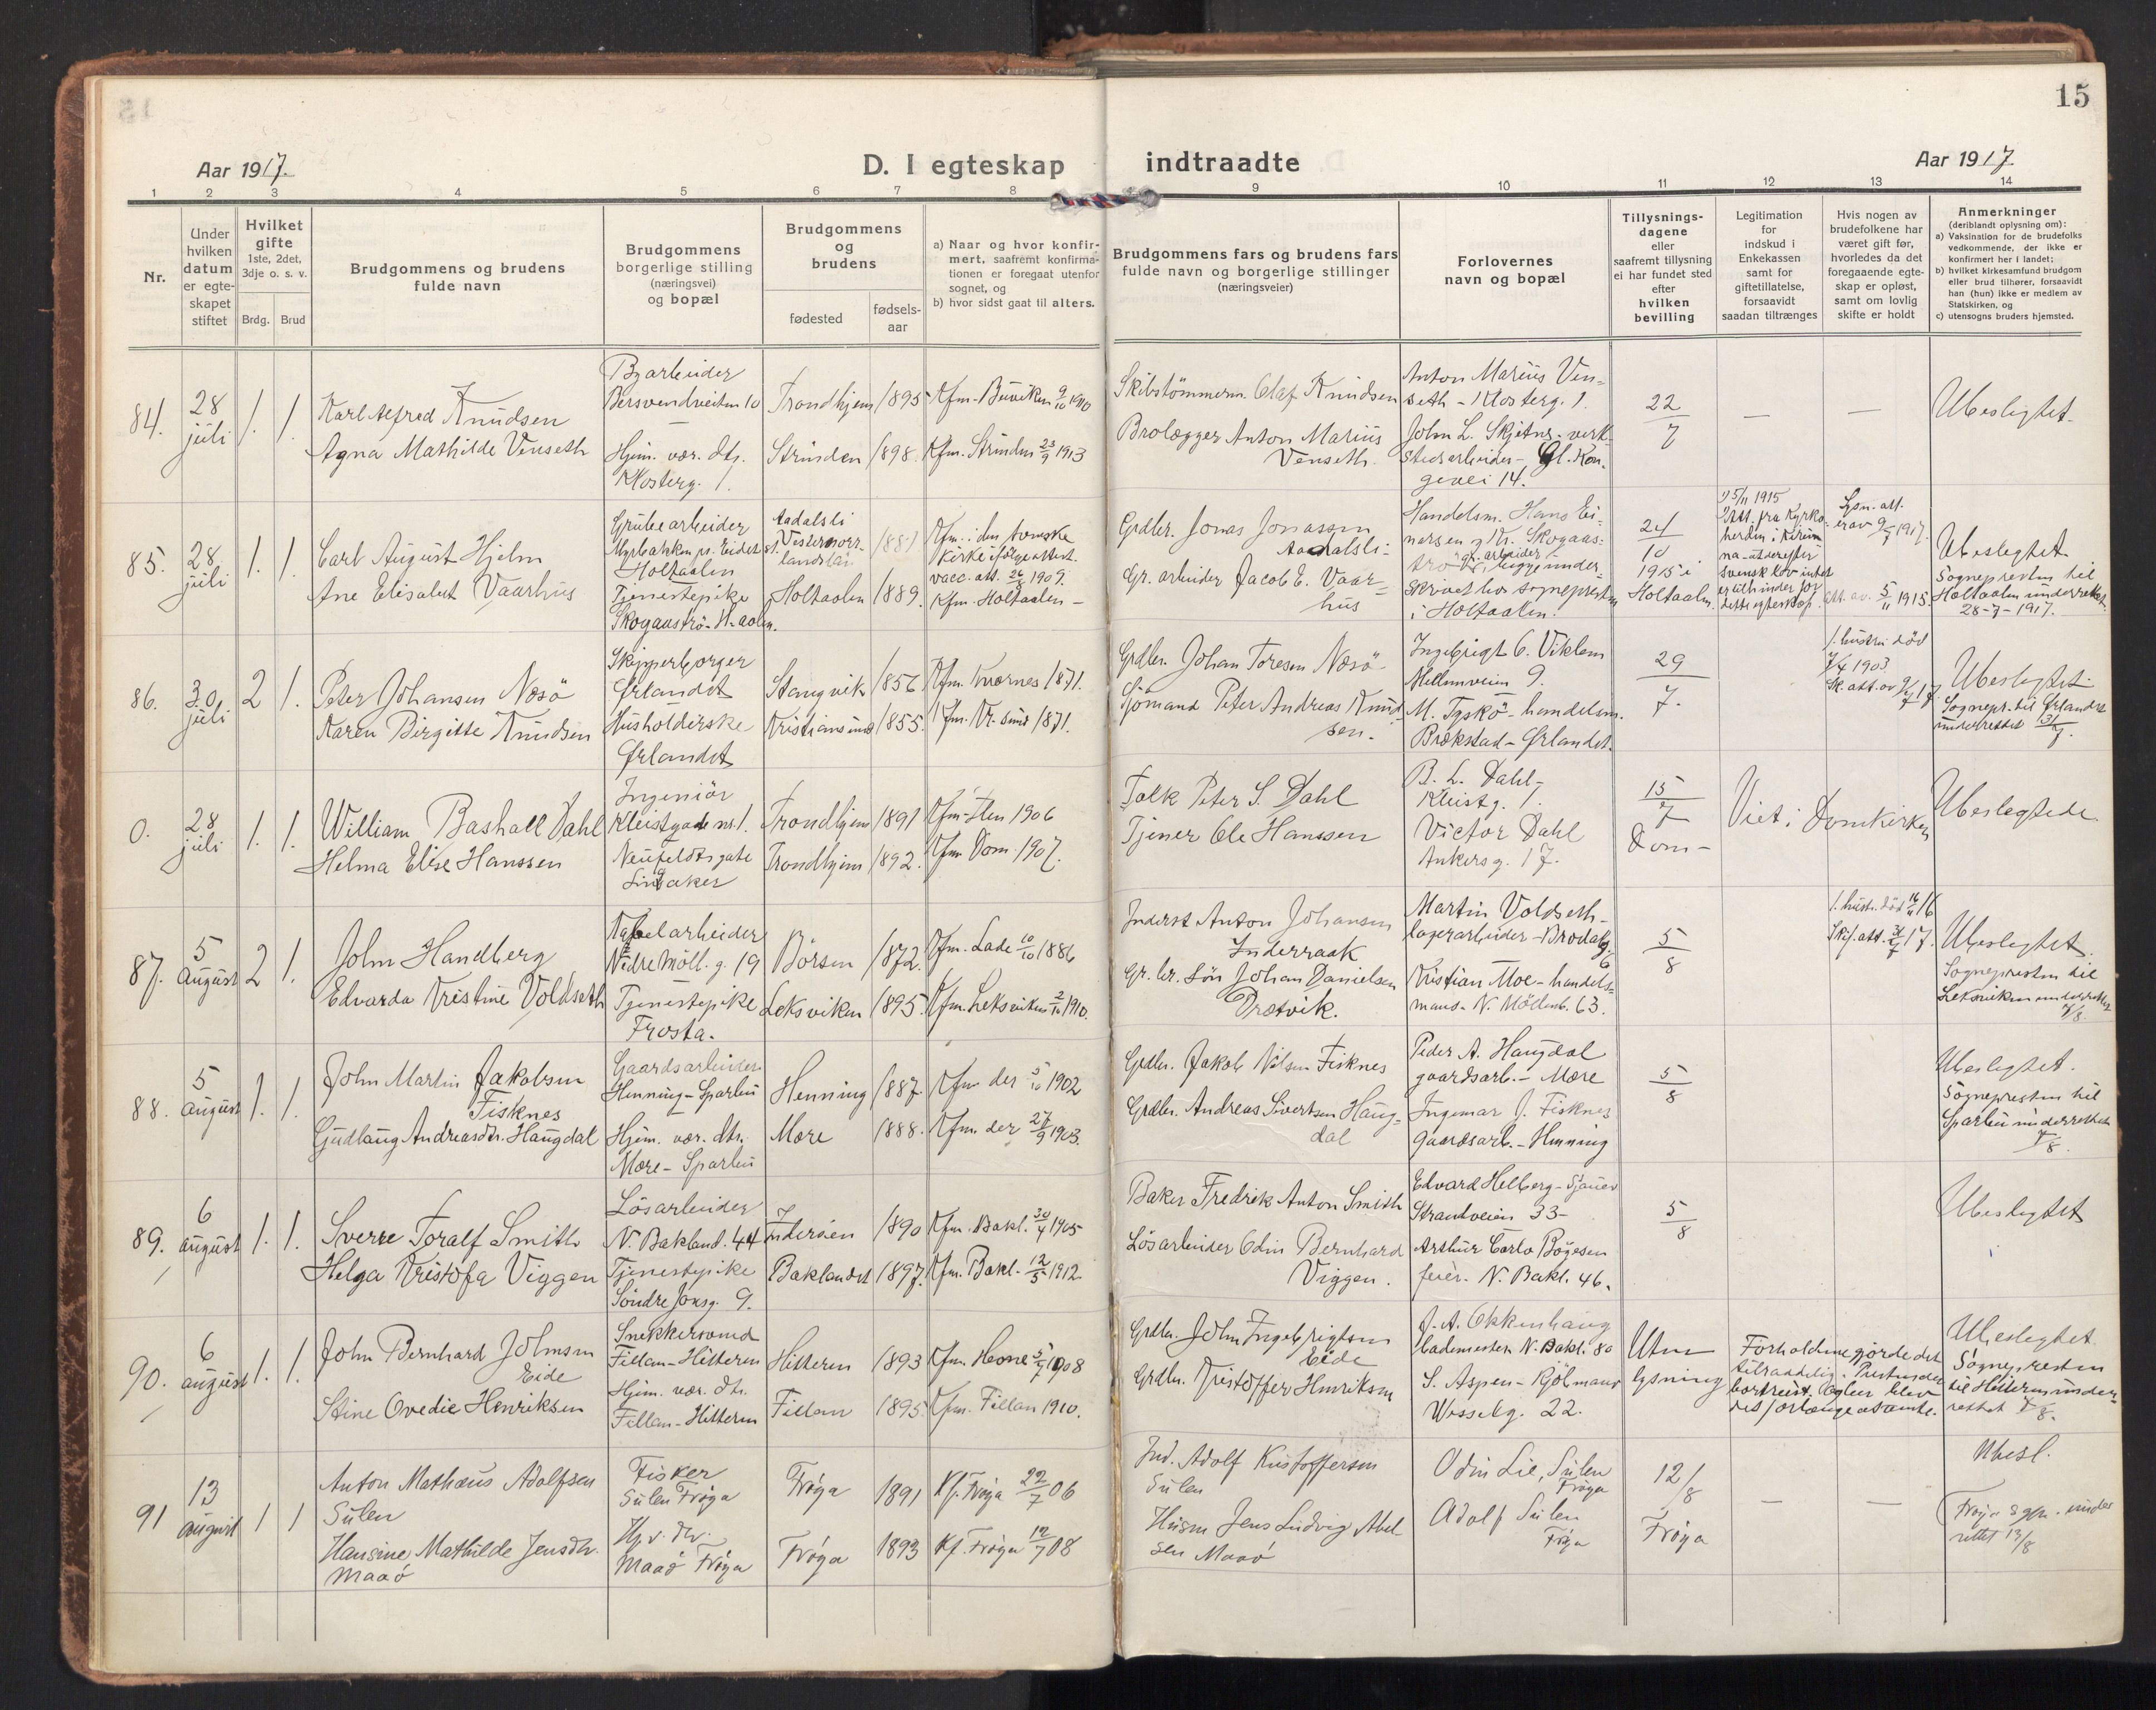 15
Aar 1917.
D. I egteskap indtraadte
Aar 1917
1 2 3 4 5 6 7 8 9 10 11 12 13 14
Nr.
Under hvilken datum er egteskapet stiftet
Hvilket gifte
1ste, 2det, 3dje o. s. v.
Brdg. Brud
Brudgommens og brudens fulde navn
Brudgommens borgerlige stilling (næringsvei) og bopæl
Brudgommens og brudens
fødested
fødselsaar
a) Naar og hvor konfirmert, saafremt konfirmationen er foregaat utenfor sognet, og
b) hvor sidst gaat til alters.
Brudgommens fars og brudens fars fulde navn og borgerlige stillinger (næringsveier)
Forlovernes navn og bopæl
Tillysningsdagene eller saafremt tillysning ei har fundet sted efter hvilken bevilling
Legitimation for indskud i Enkekassen samt for giftetillatelse, forsaavidt saadan tiltrænges
Hvis nogen av brudefolkene har været gift før, hvorledes da det foregaaende egteskap er opløst, samt om lovlig skifte er holdt
Anmerkninger
(deriblandt oplysning om):
a) Vaksination for de brudefolks vedkommende, der ikke er konfirmert her i landet;
b) hvilket kirkesamfund brudgom eller brud tilhører, forsaavidt han (hun) ikke er medlem av Statskirken, og
c) utensogns bruders hjemsted.
84. 28 juli 1. 1.
Karl Alfred Knudsen
Agna Mathilde Venseth
Byarbeider
Bersvendveiten 10
Hjem. vær. dtr.
Klosterg. 1.
Trondhjem 1895 Kfm. Buviken 9/10 1910
Strinden 1898. Kfm. Strinden 23/9 1913
Skibstömmerm. Olaf Knudsen
Brolægger Anton Marius
Venseth.
Anton Marius Ven-
seth - Klosterg. 1.
John L. Skjetne - verk-
stedsarbeider - Gl. Kon-
gevei 14.
22/7 — —
Ubeslegtet.
85. 28 juli 1. 1.
Carl August Hjelm
Ane Elisabet Vaarhus
Grubearbeider
Holtaalen
Tjenestepike
Aadalsli
Vesternorr-
landslän 1881
Holtaalen 1889.
Kfm. i den svenske
kirke ifölge attest.
vacc. att. 1909.
Kfm. Holtaalen -
Grdbr. Jonas Jonassen
Aadalsli
Gr. arbeider Jacob E. Vaar-
hus
Handelsm. Hans Ei-
narsen og Kr. Skogaas-
trö
i Holtaalen.
24/10 1915 i Holtaalen
5/11 1915
svensk lov intet
Lysn. att.
9/7 1917.
att. av 5/11 1915.
Ubeslegtet.
Sognepresten til
Holtaalen underrettet
28-7-1917.
86. 30 juli 2 1.
Peter Johansen Næsö
Karen Birgitte Knudsen
Skipperborger
Ørlandet
Husholderske
Ørlandet
Stangvik 1856 Kfm. Kvernes 1871.
Kristiansund 1855. Kfm. Kr.sund 1871.
Grdbr. Johan Toresen Næsö
Sjömand Peter Andreas Knud-
sen.
Ingebrigt C. Viklem
Mellemveien 9.
M. Tyskö - handelsm.
Brækstad - Ørlandet.
29/7.
1. hustru död
7/4 1903
Ubeslegtet.
Sognepr. til Ørlandet
underrettet 31/7.
0. 28 juli 1. 1.
William Bashall Dahl
Helma Elise Hanssen
Ingeniör
Kleistgade nr. 1.
Neufeldtsgate
Singsaker
Trondhjem 1891 Kfm. Ilen 1906
Trondhjem 1892. Kfm. Dom. 1907.
Tolk Peter S. Dahl
Tjener Ole Hanssen
B. L. Dahl -
Kleistg. 1.
Victor Dahl
Ankersg. 17.
15/7
Dom -
Viet i Domkirken
Ubeslegtede.
87. 5 august 2 1.
John Handberg
Edvarda Kristine Voldseth
Nedre Möll. g. 19
Tjenestepike
Frosta.
Börsen 1872. Kfm. Lade 10/10 1886
Leksviken 1895. Kfm. Leksviken 2/10 1910.
Inderst Anton Johansen
Inderraak
Gr. br. sön Johan Danielsen
Dretvik.
Martin Voldseth -
lagerarbeider - Brodalsg. 6
Kristian Moe - handels-
mand - N. Möllenb. 63.
5/8
1. hustr. död 16/11 16
Skif. att. 31/7 17.
Ubeslegtet.
Sognepresten til
Leksviken underrettet
7/8.
88. 5 august 1. 1.
John Martin Jakobsen
Fisknes
Gudlaug Andreasdtr. Haugdal
Gaardsarbeider
Henning - Sparbu
Hjem. vær. dtr.
Mære - Sparbu
Henning 1887. Kfm. der 5/10 1902
Mære 1888. Kfm. der 27/9 1903.
Grdbr. Jakob Nilsen Fisknes
Grdbr. Andreas Sivertsen Haug-
dal
Peder A. Haugdal
gaardsarb. - Mære
Ingemar J. Fisknes
gaardsarb. - Henning
5/8
Ubeslegtet.
Sognepresten til
Sparbu underrettet
7/8.
89. 6 august 1. 1.
Sverre Toralf Smith
Helga Kristofa Viggen
Lösarbeider
N. Bakland. 44
Tjenestepike
Söndre Jonsg. 9.
Inderöen 1890 Kfm. Bakl. 30/4 1905
Baklandet 1897. Kfm. Bakl. 12/5 1912.
Baker Fredrik Anton Smith
Lösarbeider Odin Bernhard
Viggen.
Edvard Helberg - Sjauer
Strandveien 33 -
Arthur Carlo Bögesen
feier. N. Bakl. 46.
5/8
Ubeslegtet
90. 6 august 1. 1.
John Bernhard Johnsen
Eide
Stine Ovedie Henriksen
Snekkersvend
Fillan - Hitteren
Hjem. vær. dtr.
Fillan - Hitteren
Hitteren 1893 Kfm. Hevne 5/7 1908
Fillan 1895. Kfm. Fillan 1910.
Grdbr. John Ingebrigtsen
Eide
Grdbr. Kristoffer Henriksen
J. A. Okkenhaug
bademester N. Bakl. 80
S. Aspen - Kjöbmand
Wesselsg. 22.
Uten
lysning
Forholdene gjorde det
tilraadelig. Presten der
bortreist.
Ubeslegtet.
Sognepresten
til Hitteren under-
rettet 7/8.
91 13 august 1 1
Anton Mathæus Adolfsen
Sulen
Hansine Mathilde Jensdtr.
Maaö
Fisker
Sulen Fröya
Hj. v. dtr.
Maaö Fröya
Fröya 1891 Kf. Fröya 22/7 06
Fröya 1893 Kf. Fröya 12/7 08
Ind. Adolf Kristoffersen
Sulen
Husm Jens Ludvig Abel
sen Maaö
Odin Lie, Sulen
Fröya
Adolf Sulen
Fröya
12/8
Fröya
— —
Ubesl.
Fröya sgpr. under
rettet 13/8